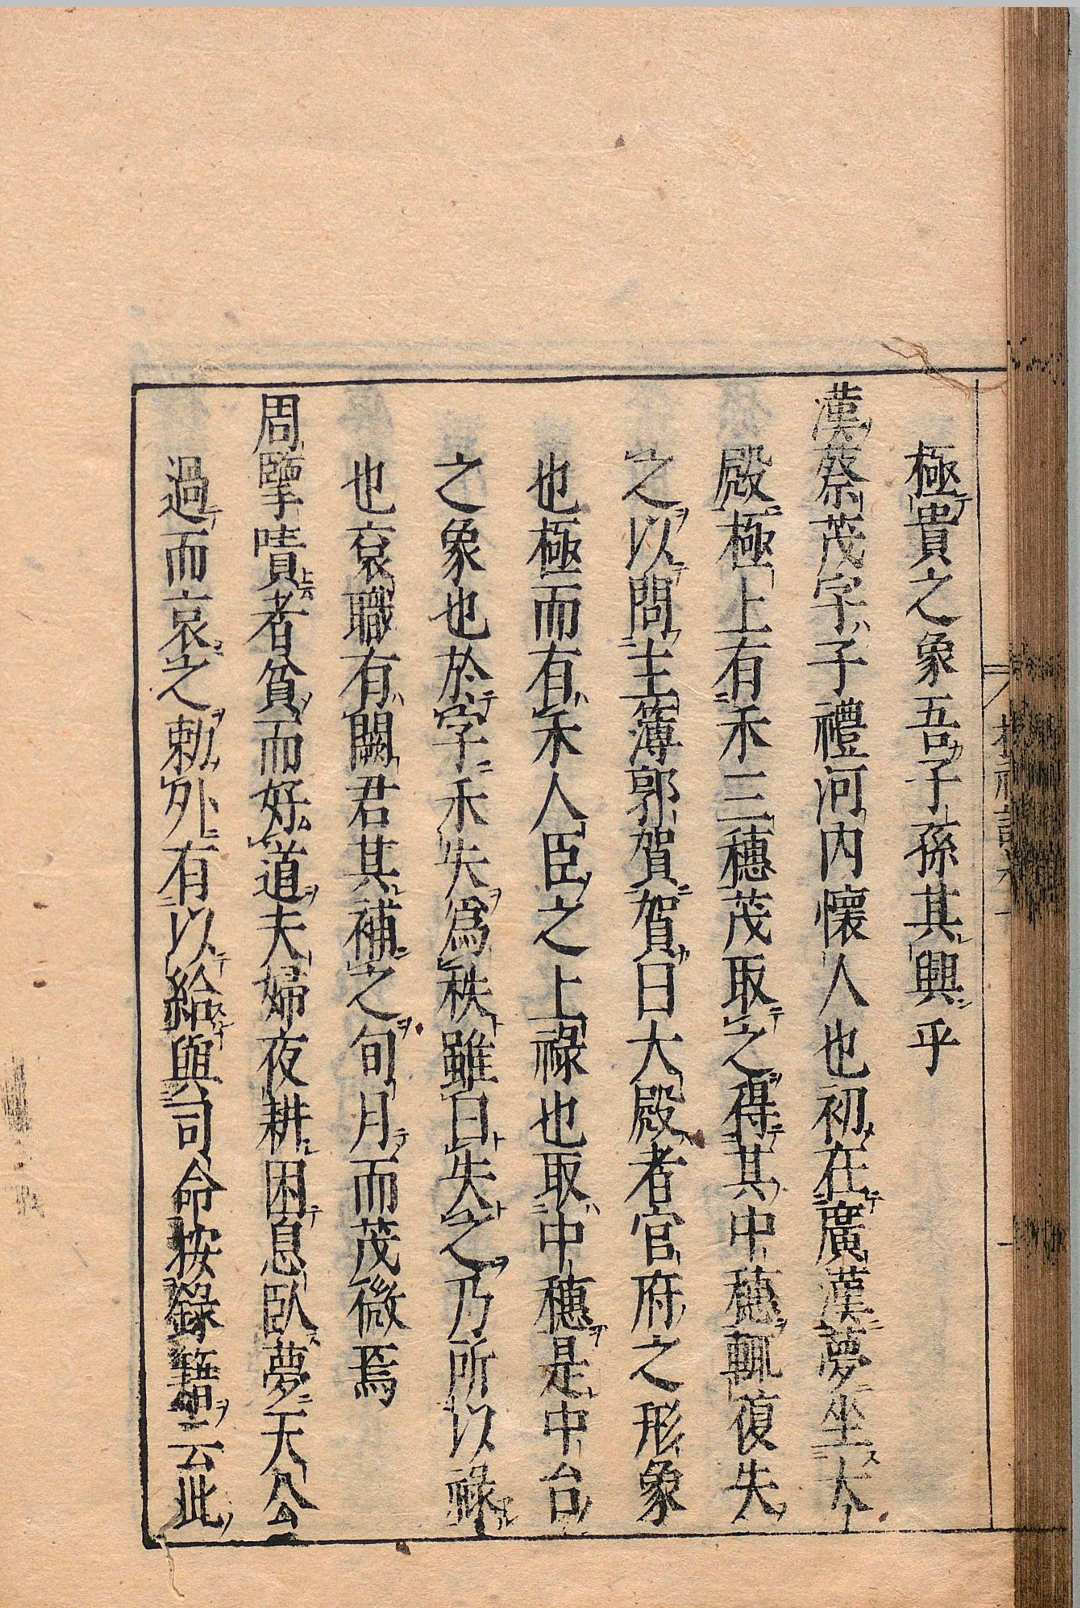 極貴之象吾子孫其興乎
漢蔡茂字子禮河內懷人也初在廣漢夢坐大
殿極上有禾三穗茂取之得其中穗輒復失
之以問主簿郭賀賀曰大殿者官府之形象
也極而有禾人臣之上祿也取中穗是中台
之象也於字禾失爲秩雖曰失之乃所以祿
也衮職有闕君其補之旬月而茂徵焉
周擥嘖者貧而好道夫婦夜耕困息臥夢天公
過而哀之勅外有以給與司命按錄籍云此